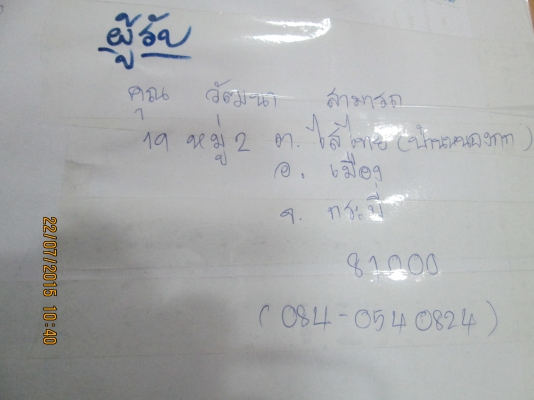 ผู้รับ
คุณ วัฒนา สามารถ
19 หมู่ 2 ต. ไสไทย (บ้านหนองกก)
อ. เมือง
จ. กระบี่
81000
(084-0540824)
22/07/2015 10:40